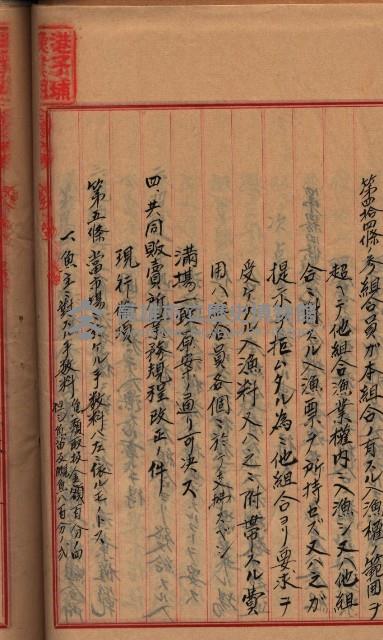 港子埔
第四拾四條 各組合員ガ本組合ノ有スル入漁權ノ範囲ヲ
超ヘテ他組合漁業權内ニ入漁シ又ハ他組
合ニ對スル入漁票ヲ所持セズ又ハ之ガ
提示ヲ拒ムタル為ニ他組合ヨリ要求ヲ
受ケタル入漁料又ハ之ニ附帯スル賞
用ハ組合員各個ニ於テ支拂スベシ
満場一致原案ノ通リ可決ス
四、共同販賣所業務規程改正ノ件
現行事項
第五條 當市場ニ於ケル手数料ハ左ニ依ルモノトス
一、魚主ニ對スル手数料 魚類取扱金額百分ノ四
但シ魚苗及鰮魚ハ百分ノ弐